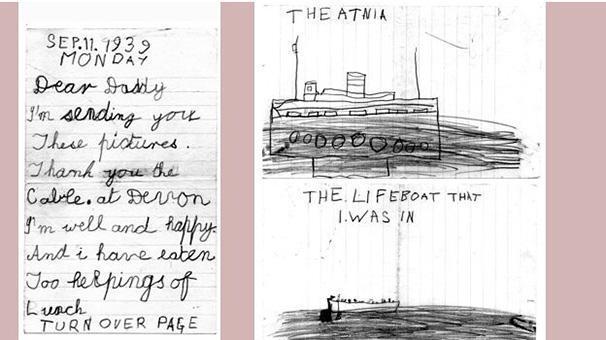 SEP.11.1939
MONDAY
Dear Daddy
I'm sending you
These pictures.
Thank you the
Cable. at Devon
I'm well and happy.
And i have eaten
Too helpings of
Lunch
TURN OVER PAGE
THE ATNIA
THE. LIFEBOAT THAT
I. WAS IN